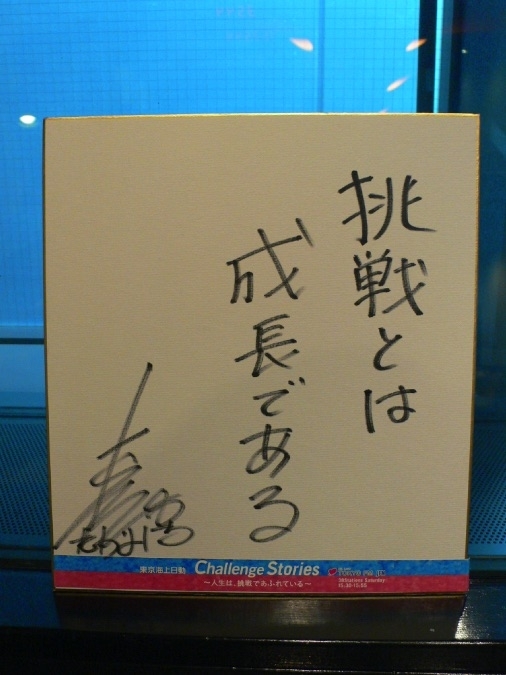 挑戦とは
成長である
東京海上日動 Challenge Stories
〜人生は、挑戦であふれている〜
TOKYO FM
38Stations Saturday